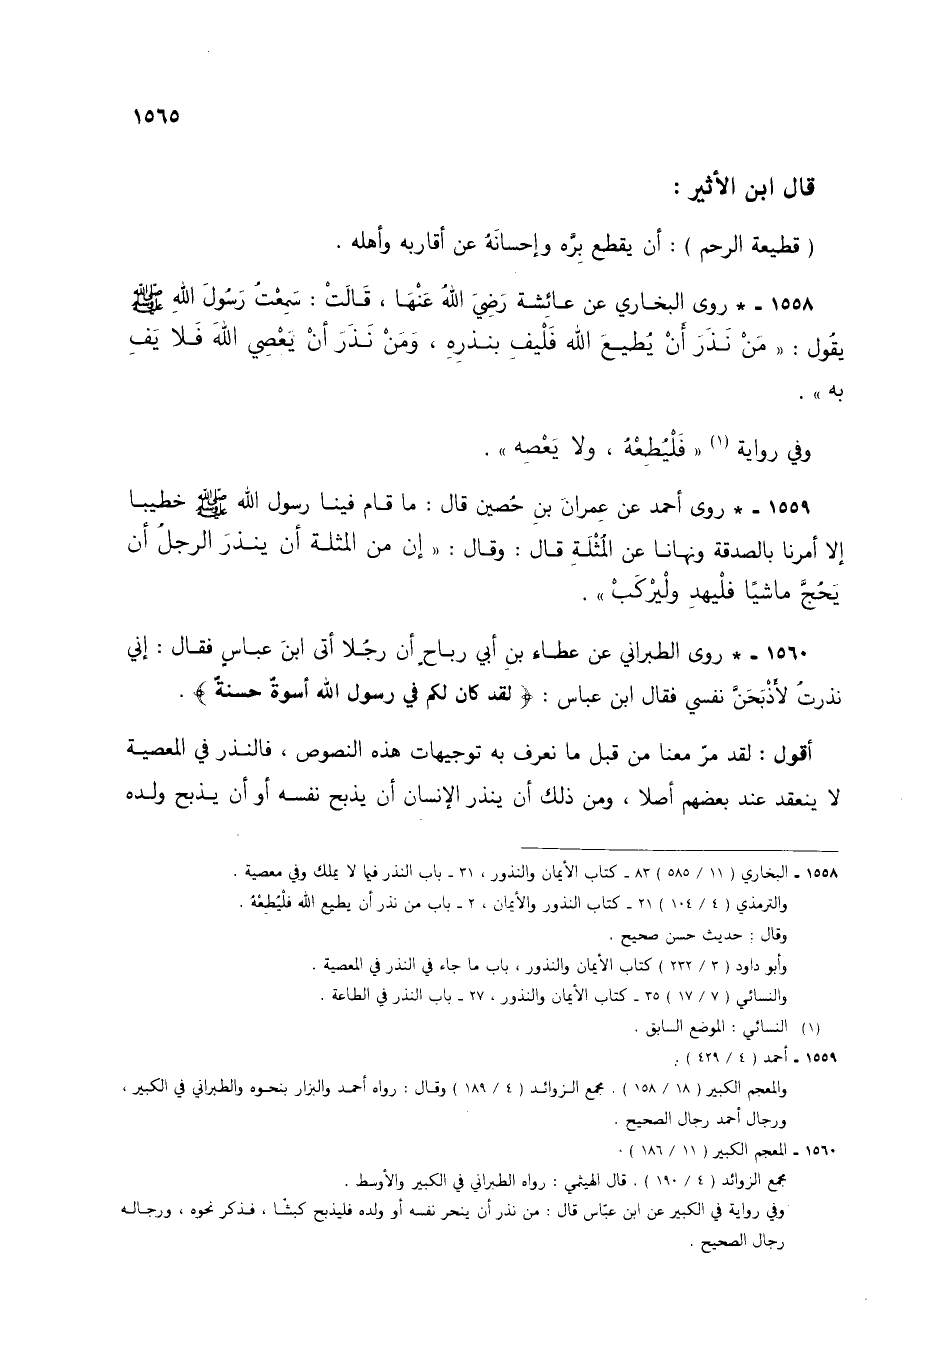 ١٥٦٥
قال ابن الأثير :
( قطيعة الرحم ) : أن يقطع برَّه وإحسانَهُ عن أقاربه وأهله .
١٥٥٨ ـ * روى البخاري عن عـائِشـة رَضِيَ اللهُ عَنْهَـا ، قَـالَتْ : سَمِعْتُ رَسُولَ اللهِ ﷺ
يقُول : « مَنْ نَـذَرَ أَنْ يُطيـعَ الله فَلْيفِ بنـذرِهِ ، وَمَنْ نَـذَرَ أنْ يَعْصِي اللهَ فَـلا يَفِ
به » .
وفي رواية (١) « فَلْيُطِعْهُ ، ولا يَعْصِهِ » .
١٥٥٩ ـ * روى أحمد عن عِمرانَ بنِ حُصين قال : ما قـام فينـا رسول الله ﷺ خطيبـا
إلا أمرنا بالصدقة ونهانـا عن المُثْلَـةِ قـال : وقال : « إن من المثلـة أن ينـذرَ الرجلُ أن
يَحُجَّ ماشيًا فلْيهدِ ولْيرْكَبْ » .
١٥٦٠ ـ * روى الطبراني عن عطـاء بنِ أبي ربـاحٍ أن رجُـلا أتى ابنَ عبـاسٍ فقـال : إني
نذرتُ لأَذْبَحَنَّ نفسي فقال ابن عباس : ﴿ لقد كان لكم في رسول الله أسوةٌ حسنةٌ ﴾ .
أقول : لقد مرّ معنا من قبل ما نعرف به توجيهات هذه النصوص ، فالنـذر في المعصيـة
لا ينعقد عند بعضهم أصلا ، ومن ذلك أن ينذر الإنسان أن يذبح نفسـه أو أن يـذبح ولـده
١٥٥٨ ـ البخاري ( ١١ / ٥٨٥ ) ٨٣ ـ كتاب الأيمان والنذور ، ٣١ ـ باب النذر فيما لا يملك وفي معصية .
والترمذي ( ٤ / ١٠٤ ) ٢١ ـ كتاب النذور والأيمان ، ٢ ـ باب من نذر أن يطيع الله فلْيُطِعْهُ .
وقال : حديث حسن صحيح .
وأبو داود ( ٣ / ٢٣٢ ) كتاب الأيمان والنذور ، باب ما جاء في النذر في المعصية .
والنسائي ( ٧ / ١٧ ) ٣٥ ـ كتاب الأيمان والنذور ، ٢٧ ـ باب النذر في الطاعة .
(١) النسائي : الموضع السابق .
١٥٥٩ ـ أحمد ( ٤ / ٤٢٩ ) .
والمعجم الكبير ( ١٨ / ١٥٨ ) . مجمع الـزوائـد ( ٤ / ١٨٩ ) وقـال : رواه أحمـد والبزار بنحـوه والطبراني في الكبير ،
ورجال أحمد رجال الصحيح .
١٥٦٠ ـ المعجم الكبير ( ١١ / ١٨٦ ) .
مجمع الزوائد ( ٤ / ١٩٠ ) . قال الهيثمي : رواه الطبراني في الكبير والأوسط .
وفي رواية في الكبير عن ابن عبّاس قال : من نذر أن ينحر نفسه أو ولده فليذبح كبشًـا ، فـذكر نحوه ، ورجـالـه
رجال الصحيح .